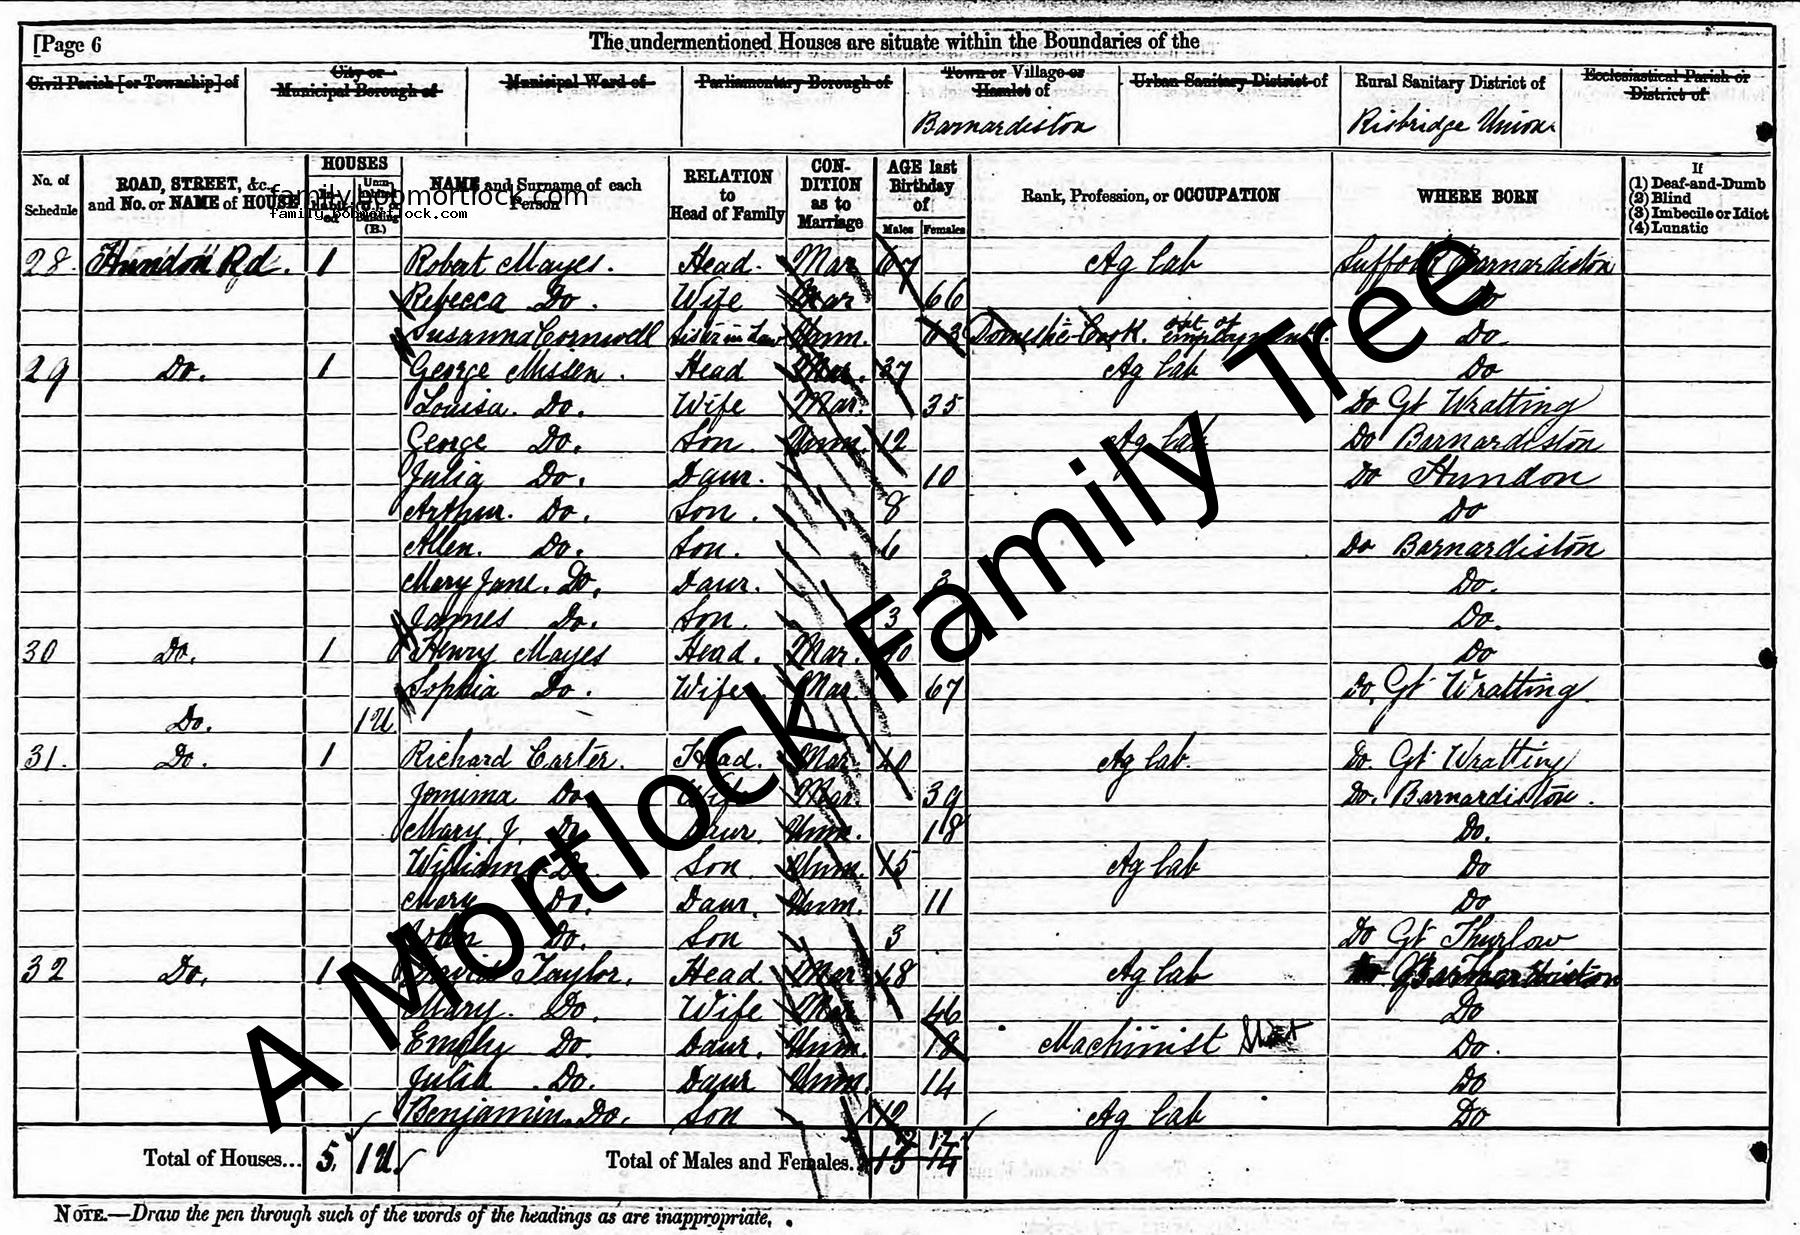 [Page 6 The undermentioned Houses are situate within the Boundaries of the
Civil Parish [or Township] of City or Municipal Borough of Municipal Ward of Parliamentary Borough of Town or Village or Hamlet of Urban Sanitary District of Rural Sanitary District of Ecclesiastical Parish or District of
Barnardiston Risbridge Union
No. of Schedule ROAD, STREET, &c., and No. or NAME of HOUSE HOUSES NAME and Surname of each Person RELATION to Head of Family CONDITION as to Marriage AGE last Birthday of Rank, Profession, or OCCUPATION WHERE BORN If
(1) Deaf-and-Dumb
(2) Blind
(3) Imbecile or Idiot
(4) Lunatic
(B.) Males Females
family.bobmortlock.com
family.bobmortlock.com
28. Hundon Rd. 1 Robert Mayes. Head. Mar 67 Ag Lab Suffolk Barnardiston
Rebecca Do. Wife Mar 66 Do
Susanna Cornwell Sister in Law Unm. 63 Domestic Cook. out of employment. Do.
29 Do. 1 George Missen. Head Mar. 37 Ag Lab Do
Louisa. Do. Wife Mar. 35 Do Gt Wratting
George Do. Son. Unm. 12 Ag Lab Do Barnardiston
Julia Do. Daur. 10 Do Hundon
Arthur. Do. Son. 8 Do
Allen. Do. Son. 6 Do Barnardiston
Mary Jane. Do. Daur. Do.
James Do. Son. 3 Do.
30 Do. 1 Henry Mayes Head. Mar. Do
Sophia Do. Wife Mar. 67 Do. Gt Wratting.
Do. 1U
31. Do. 1 Richard Carter. Head. Mar 40 Ag Lab. Do. Gt Wratting
Jemima Do Wife Mar 39 Do. Barnardiston.
Mary J. Do Daur. Unm. 18 Do.
William Do. Son. Unm. 15 Ag Lab Do
Mary Do. Daur. Unm. 11 Do
John Do. Son 3 Do Gt Thurlow
32 Do. 1 David Taylor. Head. Mar 48 Ag Lab Barnardiston
Mary. Do. Wife Mar 46 Do
Emily Do. Daur. Unm. 18 Machinist Do.
Julia Do. Daur Unm. 14 Do
Benjamin Do. Son 12 Ag Lab Do
12 12
Total of Houses... 5. 1U. Total of Males and Females... 13 14
NOTE.—Draw the pen through such of the words of the headings as are inappropriate.
A Mortlock Family Tree